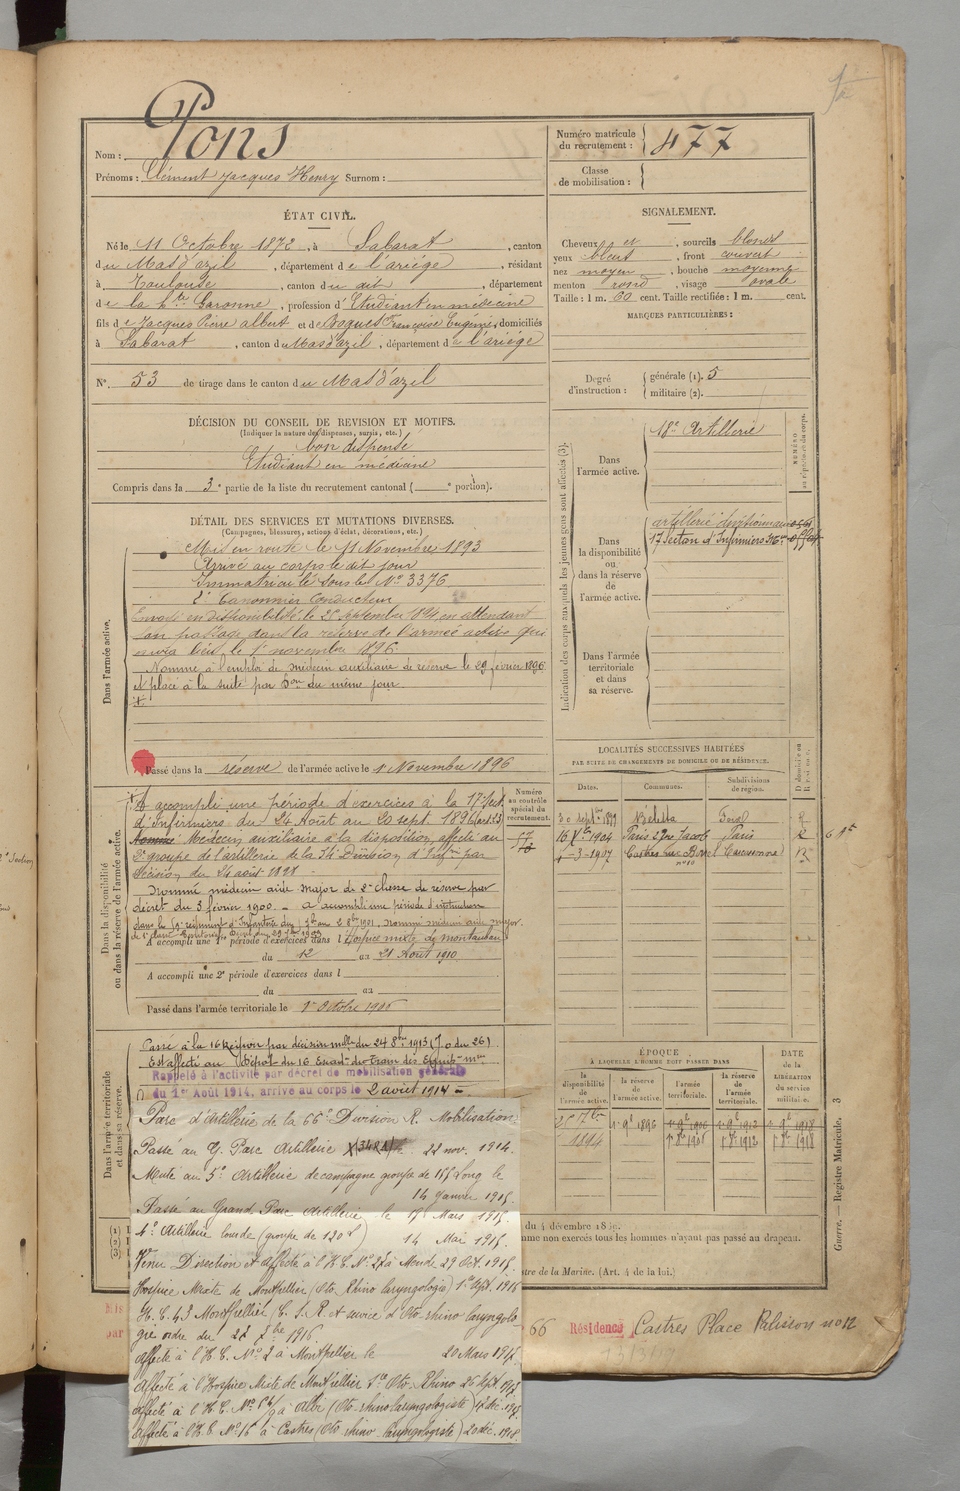 Nom : Pons
Prénoms : Clément Jacques Henry Surnom :
Numéro matricule du recrutement : 477
Classe de mobilisation :
ÉTAT CIVIL.
Né le 11 Octobre 1872, à Sabarat, canton
du Mas d'azil, département de l'ariége, résidant
à Toulouse, canton du dit, département
de la hte Garonne, profession d'Etudiant en médecine
fils de Jacques Pierre albert et de Françoise Eugénie, domiciliés
à Sabarat, canton du Mas d'azil, département de l'ariége
N° 53 de tirage dans le canton du Mas d'azil
SIGNALEMENT.
Cheveux et, sourcils blonds
yeux bleus, front couvert
nez moyen, bouche moyenne
menton rond, visage ovale
Taille : 1 m. 60 cent. Taille rectifiée : 1 m. cent.
MARQUES PARTICULIÈRES :
Degré d'instruction : générale (1). 5
militaire (2).
DÉCISION DU CONSEIL DE REVISION ET MOTIFS.
(Indiquer la nature des dispenses, sursis, etc.)
bon dispensé
Etudiant en médecine
Compris dans la 3e partie de la liste du recrutement cantonal ( e portion).
DÉTAIL DES SERVICES ET MUTATIONS DIVERSES.
(Campagnes, blessures, actions d'éclat, décorations, etc.)
Dans l'armée active.
Mis en route le 11 Novembre 1893
Arrivé au corps le dit jour
Immatriculé sous le No 3376
2e Canonnier Conducteur
Envoyé en disponibilité le 25 Septembre 1894 en attendant
son passage dans la réserve de l'armée active qui
aura lieu le 1er novembre 1896.
Nommé à l'emploi de médecin auxiliaire de réserve le 29 février 1896
et placé à la suite par don du même jour.
Passé dans la réserve de l'armée active le 1 Novembre 1896
Indication des corps auxquels les jeunes gens sont affectés (3).
NUMÉRO au répertoire du corps.
Dans l'armée active.
18e Artillerie
Dans la disponibilité ou dans la réserve de l'armée active.
artillerie divisionnaire
17 Section d'Infirmiers
Dans l'armée territoriale et dans sa réserve.
LOCALITÉS SUCCESSIVES HABITÉES
PAR SUITE DE CHANGEMENTS DE DOMICILE OU DE RÉSIDENCE.
Dates. Communes. Subdivisions de région. D domicile ou R résidence.
20 septbre 1899 R
1904 Paris 2 rue Jacob Paris R
-3-1907 Castres Carcassonne
Dans la disponibilité ou dans la réserve de l'armée active.
Numéro au contrôle spécial du recrutement.
A accompli une période d'exercices à la 17e Sect.
d'infirmiers du 24 Août au 20 sept. 1896
Nommé Médecin auxiliaire à la disposition, affecté au
2e groupe de l'artillerie de la 34e Division d'Infrie par
décision du 24 août 1898
Nommé médecin aide major de 2e classe de réserve par
décret du 3 février 1900. - A accompli une période d'instruction
A accompli une 1re période d'exercices dans l'Hospice mixte de montauban
du 12 au 21 Août 1910
A accompli une 2e période d'exercices dans l
du au
Passé dans l'armée territoriale le 1er Octobre 1906
Dans l'armée territoriale et dans sa réserve.
Passé à la 16 Région par décision mlle du 24 8bre 1913 (J.o du 26)
Est affecté au Dépôt du 16 Escadn du train des Equip. mres
Rappelé à l'activité par décret de mobilisation générale
du 1er Août 1914, arrivé au corps le 2 août 1914 -
Parc d'Artillerie de la 66e Division R. Mobilisation
Passé au G. Parc Artillerie 22 nov. 1914.
Muté au 5e Artillerie de campagne groupe de 155 Long le
14 Janvier 1915.
Passé au Grand Parc Artillerie le 15 Mars 1915.
4e Artillerie lourde (groupe de 120 L) 14 Mai 1915.
Venu Direction et affecté à l'H.C. No 27 à Mende 29 Oct. 1915.
Hospice Mixte de Montpellier (Oto. Rhino laryngologie) 1er Sept. 1916
H.C. 43 Montpellier C.S.R. et service d'Oto-rhino-laryngolo-
gie ordre du 22 7bre 1916.
affecté à l'H.C. No 2 à Montpellier le 20 Mars 1917.
Affecté à l'Hospice Mixte de Montpellier Sce Oto. Rhino 26 Sept. 1917
affecté à l'H.C. No à Albi (Oto-rhino-laryngologiste)
affecté à l'H.C. No 15 à Castres (Oto rhino-laryngologiste) 20 déc. 1918.
ÉPOQUE
A LAQUELLE L'HOMME DOIT PASSER DANS
la disponibilité de l'armée active. la réserve de l'armée active. l'armée territoriale. la réserve de l'armée territoriale.
DATE de la LIBÉRATION du service militaire.
25 7bre 1894
1er 9e 1896
du 4 décembre 18
mme non exercés tous les hommes n'ayant pas passé au drapeau.
stre de la Marine. (Art. 4 de la loi.)
66 Résidence Castres Place Pelisson no 12
Guerre. — Registre Matricule. 3